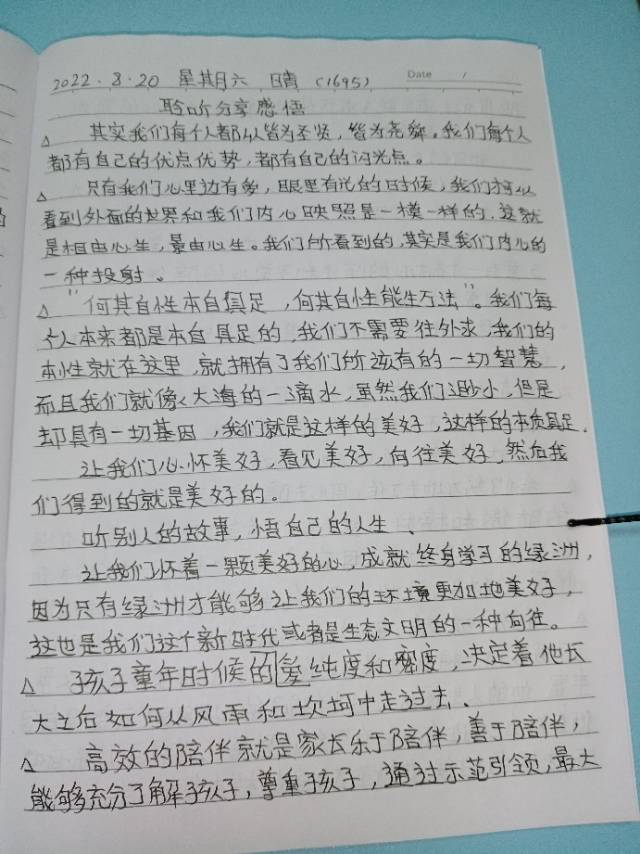 2022.8.20 星期六 晴 (1695) Date /
聆听分享感悟
△ 其实我们每个人都以皆为圣贤，皆为尧舜。我们每个人
都有自己的优点优势，都有自己的闪光点。
△ 只有我们心里边有爱，眼里有光的时候，我们才可以
看到外面的世界和我们内心映照是一模一样的，这就
是相由心生，景由心生。我们所看到的，其实是我们内心的
一种投射。
△ "何其自性本自俱足，何其自性能生万法"。我们每
个人本来都是本自具足的，我们不需要往外求，我们的
本性就在这里，就拥有了我们所该有的一切智慧，
而且我们就像大海的一滴水，虽然我们渺小，但是
却具有一切基因，我们就是这样的美好，这样的本质具足.
让我们心怀美好，看见美好，向往美好，然后我
们得到的就是美好的。
听别人的故事，悟自己的人生、
让我们怀着一颗美好的心，成就终身学习的绿洲，
因为只有绿洲才能够让我们的环境更加地美好，
这也是我们这个新时代或者是生态文明的一种向往。
△ 孩子童年时候的爱纯度和密度，决定着他长
大之后如何从风雨和坎坷中走过去、
△ 高效的陪伴就是家长乐于陪伴，善于陪伴，
能够充分了解孩子，尊重孩子，通过示范引领，最大